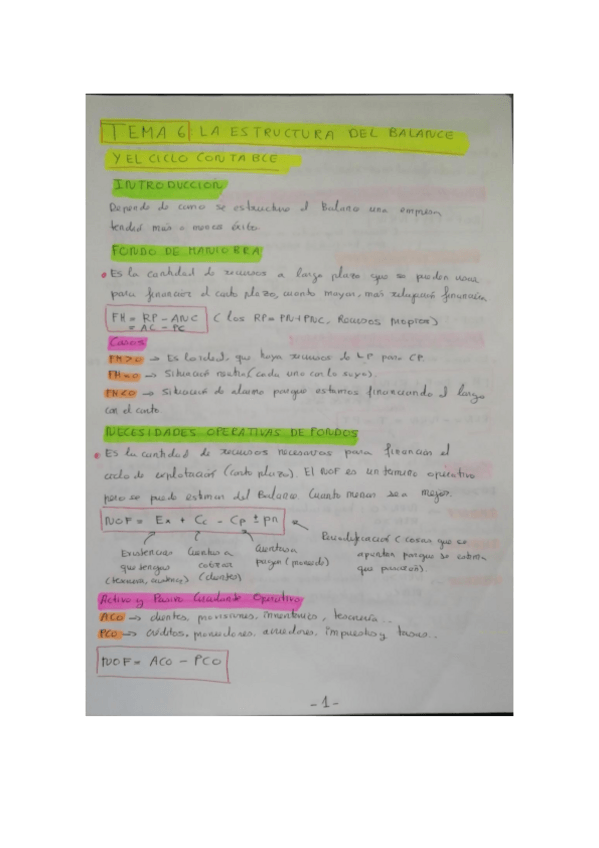 TEMA 6 LA ESTRUCTURA DEL BALANCE
Y EL CICLO CONTABLE
INTRODUCCION
Depende de como se estructure el Balance una empresa
tendrá más o menos éxito.
FONDO DE MANIOBRA
• Es la cantidad de recursos a largo plazo que se pueden usar
para financiar el corto plazo, cuanto mayor, más relajación financiera
FM = RP - ANC (los RP = PN+PNC, Recursos propios)
= AC - PC
Casos
FM>0 → Es lo ideal, que haya recursos de LP para CP.
FM=0 → Situación neutra (cada uno con lo suyo).
FM<0 → Situación de alarma porque estamos financiando el largo
con el corto.
NECESIDADES OPERATIVAS DE FONDOS
• Es la cantidad de recursos necesarios para financiar el
ciclo de explotación (corto plazo). El NOF es un termino operativo
pero se puede estimar del Balance. Cuanto menos sea mejor.
NOF = Ex + Cc - Cp ± pn
Periodificación (cosas que se
apuntan porque se cobran
que pasarán).
Existencias que tengas
Cuentas a cobrar (clientes)
Cuentas a pagar (proveedo)
Activo y Pasivo Circulante Operativo
ACO → clientes, provisiones, inventarios, tesorería...
PCO → créditos, proveedores, acreedores, impuestos y tasas..
NOF = ACO - PCO
-1-